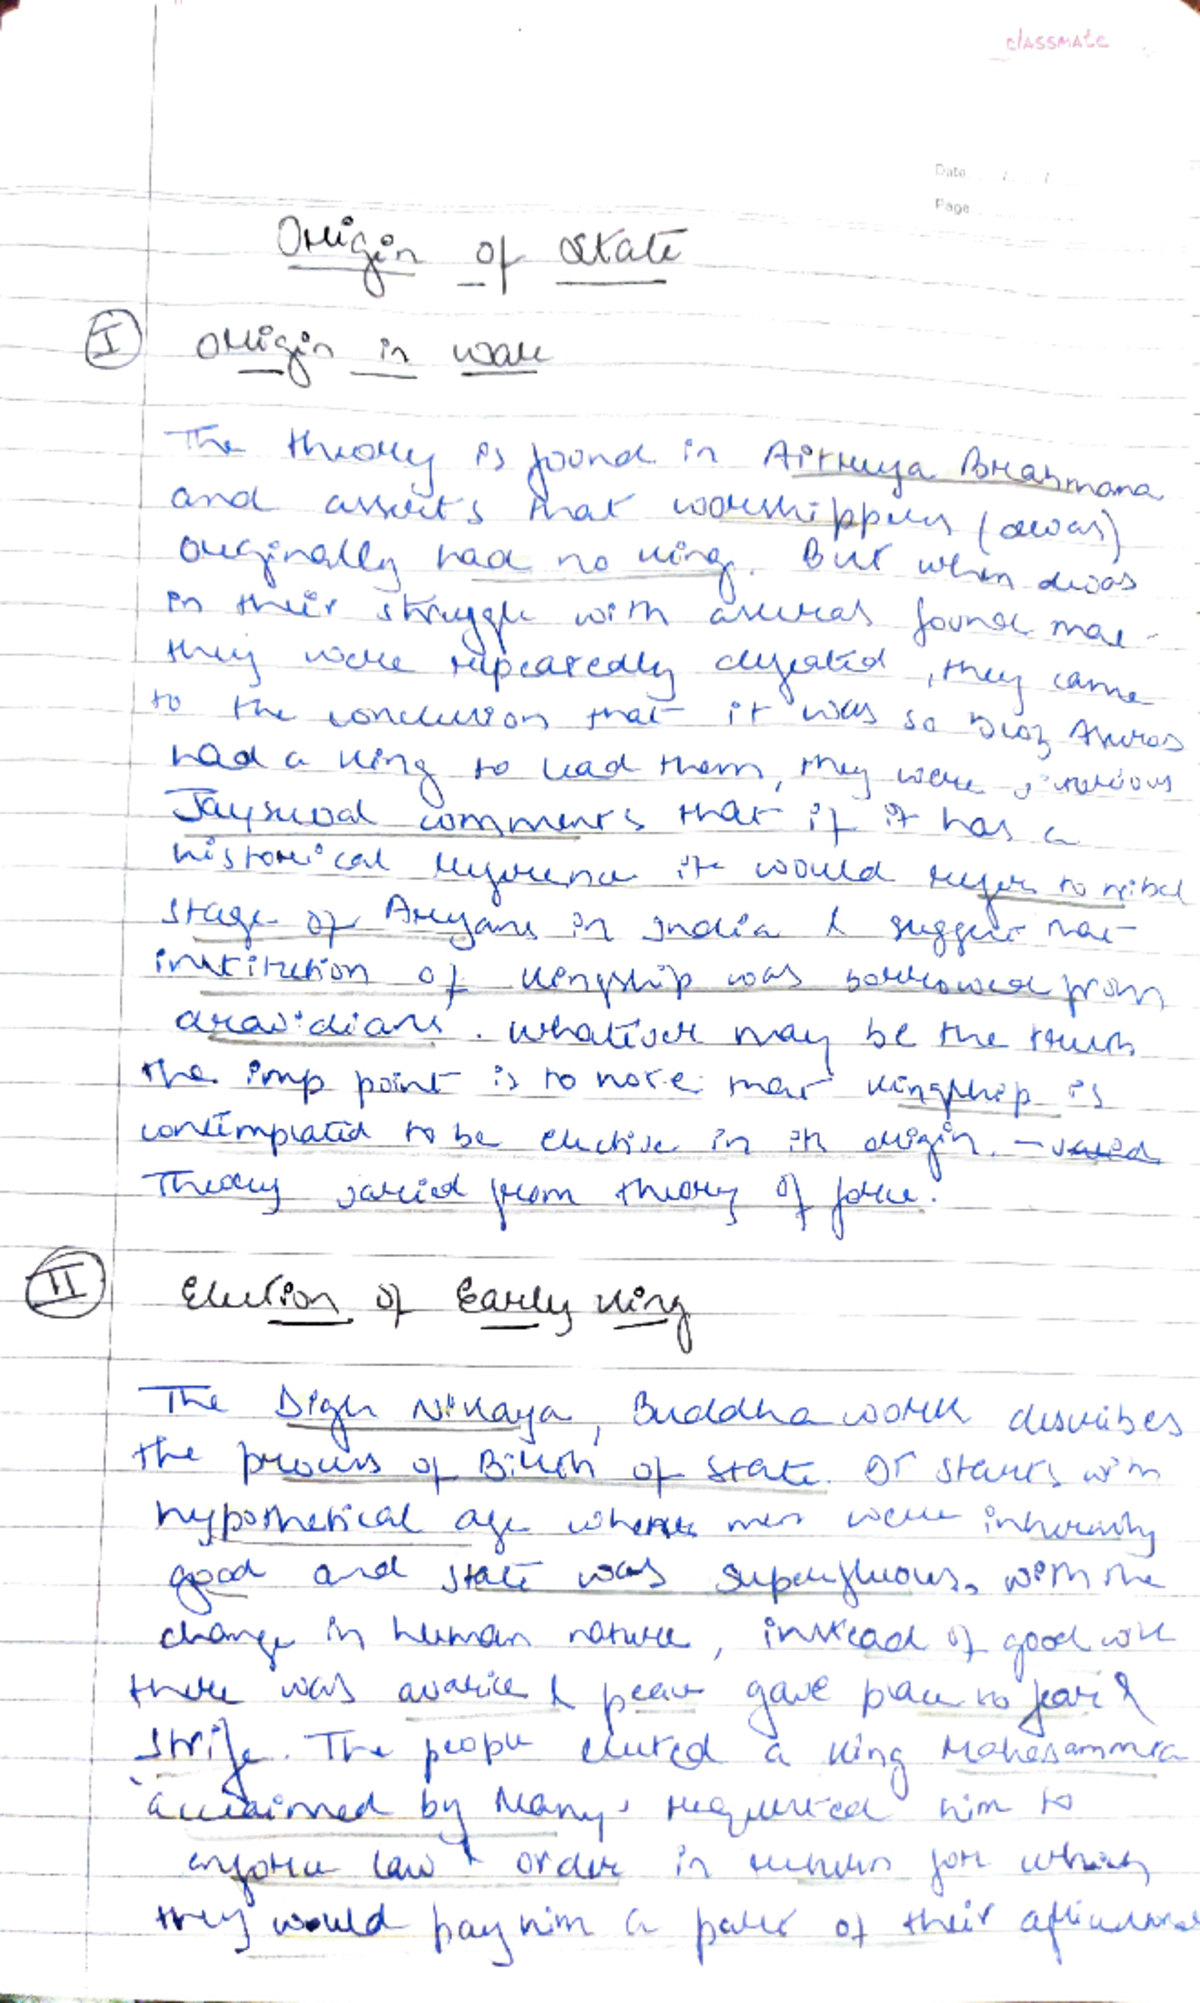 classmate
Date / /
Page
Origin of State
I Origin in war
The theory is found in Aitreya Brahmana
and asserts that worshippers (devas)
originally had no king. But when devas
in their struggle with asuras found that
they were repeatedly defeated, they came
to the conclusion that it was so bcoz Asuras
had a king to lead them, they were victorious
Jayswal comments that if it has a
historical reference it would refer to tribal
stage of Aryans in India & suggest that
institution of kingship was borrowed from
dravidians. Whatever may be the truth
the imp point is to note that kingship is
contemplated to be elective in its origin.
Theory varied from theory of force.
II Election of Early king
The Digh Nikaya, Buddha work describes
the process of Birth of State. It starts with
hypothetical age where men were inherently
good and state was superfluous. with the
change in human nature, instead of good will
there was avarice & peace gave place to fear &
strife. The people elected a king Mahasammta
'acclaimed by Many' requested him to
enforce law & order in return for which
they would pay him a part of their